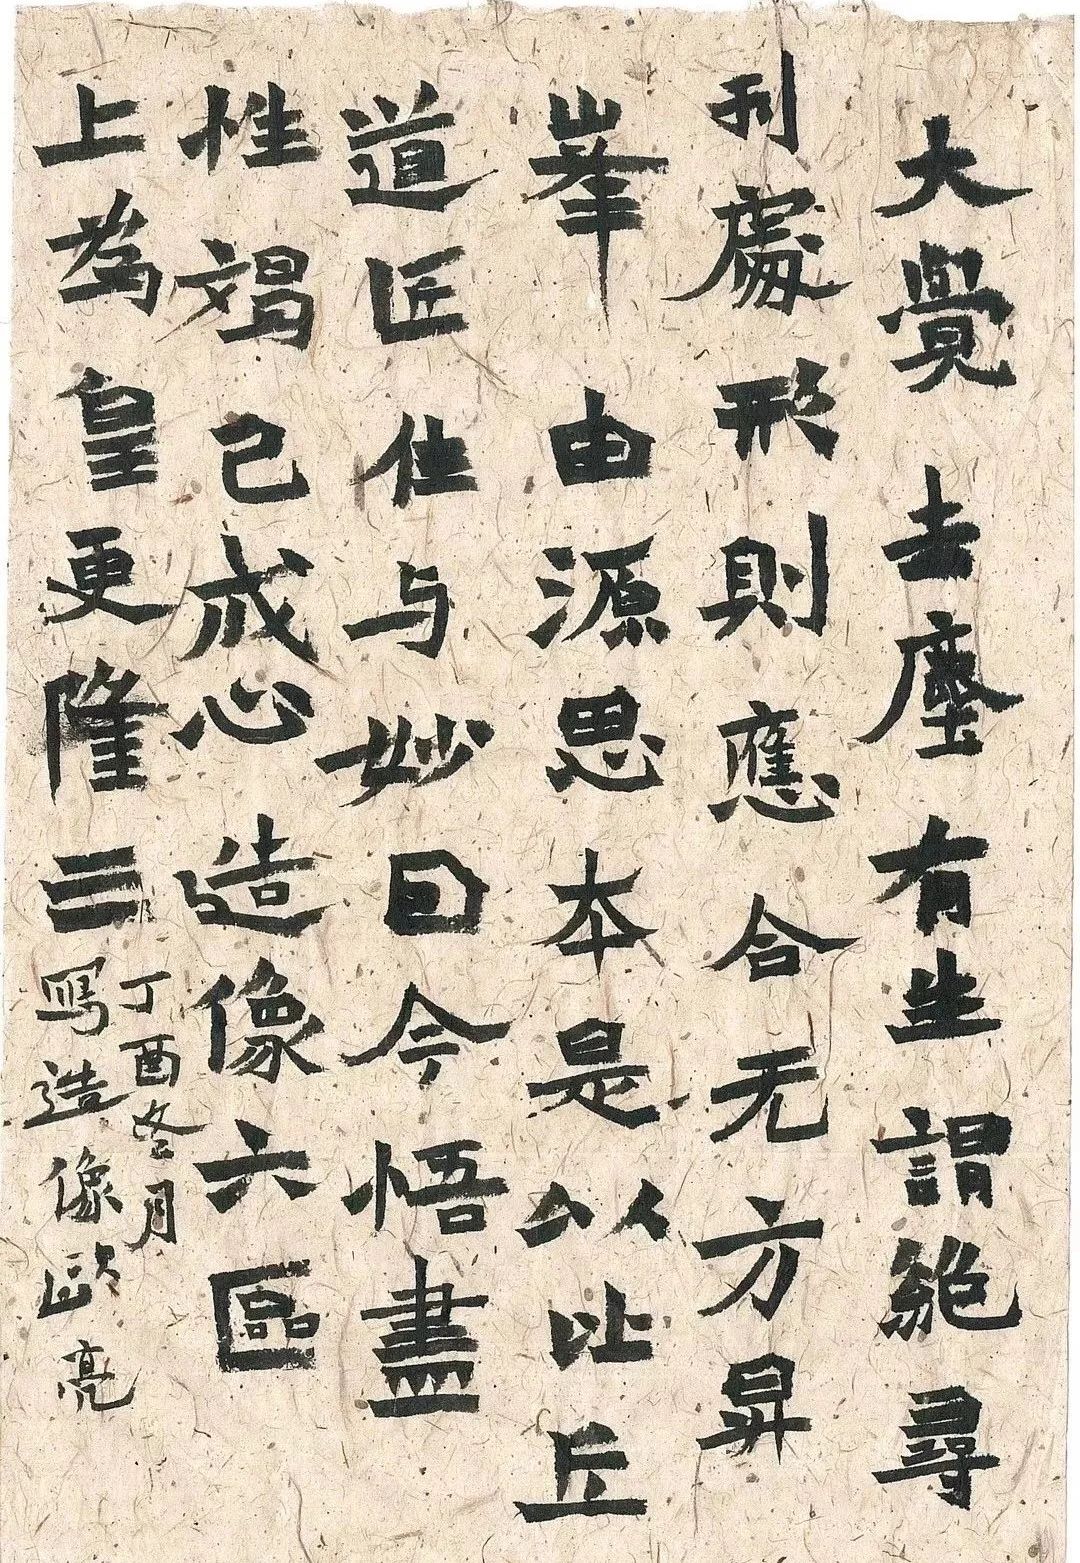 大覺去塵有生謂絶尋
刹處形則應合无方昇
峯由源思本是以比丘
道匠住与妙曰今悟盡
性竭己戒心造像六區
上為皇更隆三
丁酉冬月
寫造像
亮